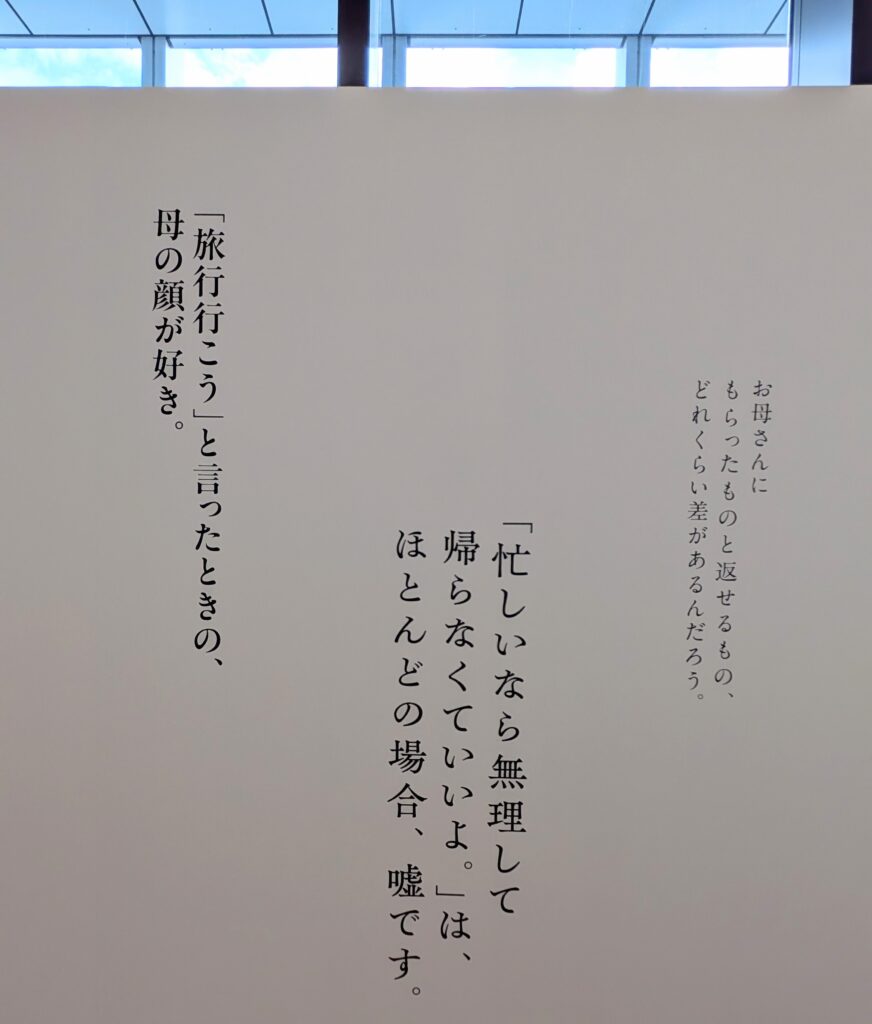 お母さんに
もらったものと返せるもの、
どれくらい差があるんだろう。
「忙しいなら無理して
帰らなくていいよ。」は、
ほとんどの場合、嘘です。
「旅行行こう」と言ったときの、
母の顔が好き。